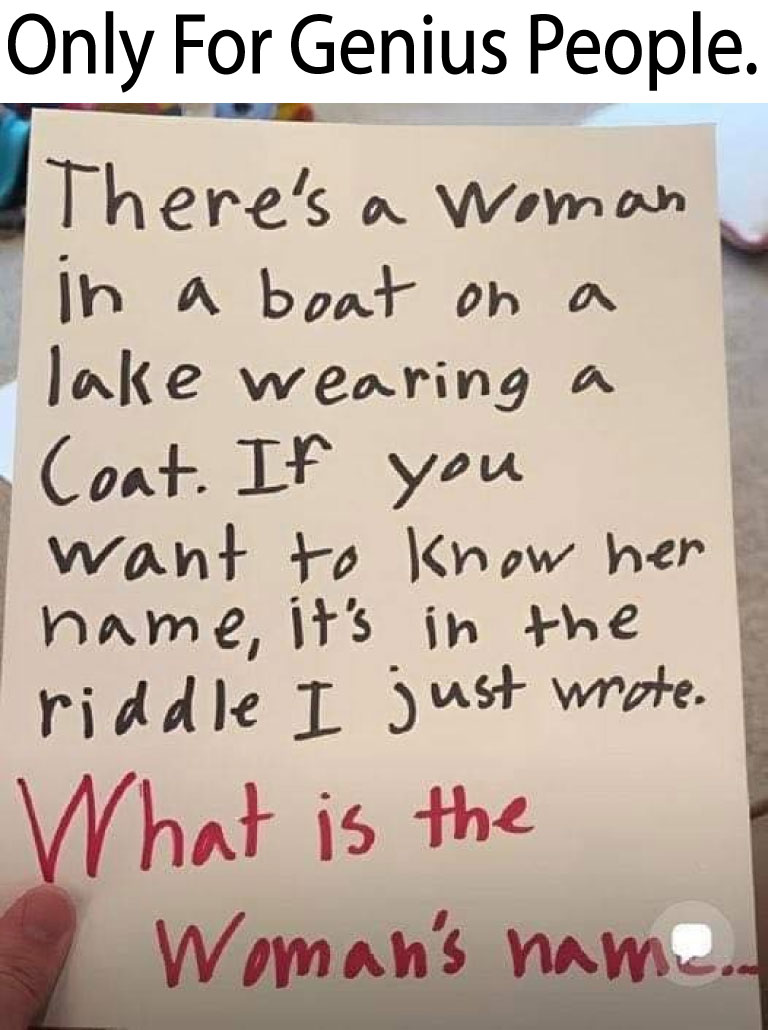 Only For Genius People.
There's a woman
in a boat on a
lake wearing a
Coat. If you
want to know her
name, it's in the
riddle I just wrote.
What is the
Woman's name...